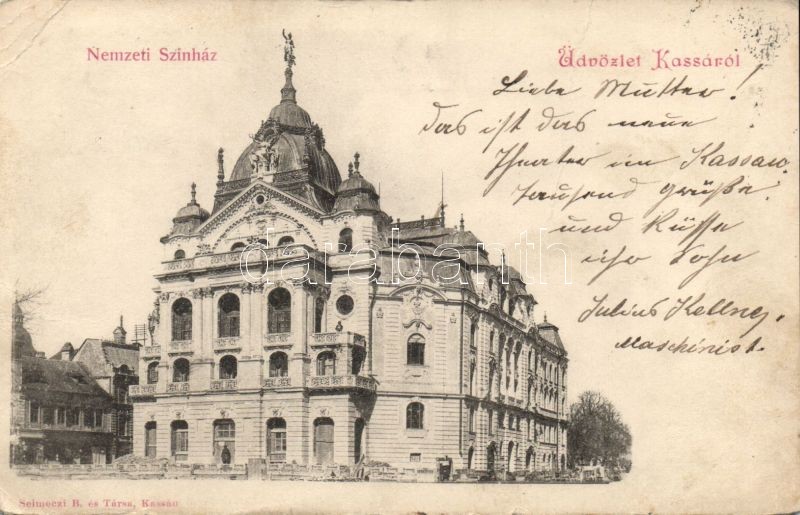 Nemzeti Szinház
Üdvözlet Kassáról
Liebe Mutter!
das ist das neue
Theater in Kassau.
Tausend Grüße
und Küsse
ihr Sohn
Julius Kellner,
Maschinist.
darabanth
Selmeczi B. és Társa, Kassán